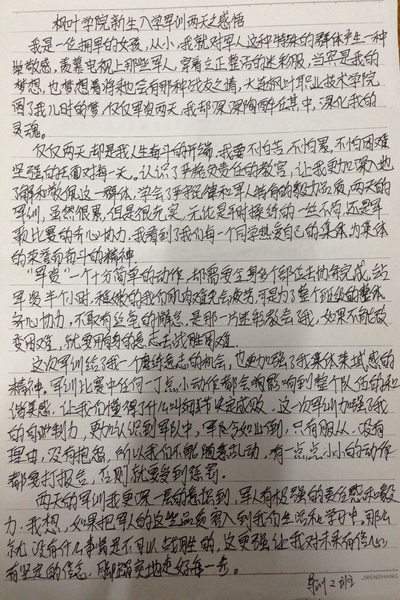 枫叶学院新生入学军训两天之感悟
我是一位拥军的女孩，从小，我就对军人这种特殊的群体产生一种
崇敬感，羡慕电视上那些军人，穿着立正整洁的迷彩服，当兵是我的
梦想，也梦想着将来也会有那种战友之情，大连枫叶职业技术学院
圆了我儿时的梦，仅仅军资两天，我却深深陶醉在其中，深化我的
灵魂。
仅仅两天却是我人生奋斗的开端，我要不怕苦，不怕累，不怕困难
坚强的去面对每一天。认识了严格负责任的教官，让我更加深入地
了解和敬佩这一群体，学会了严于律和军人特有的毅力品质，两天的
军训，虽然很累，但是很充实，无论是平时操练的一丝不苟，还是军
歌比赛的齐心协力，我看到了我们每一个同学热爱自己的集体，为集体
的荣誉而奋斗的精神。
“军资”一个十分简单的动作，却需要全身多个部位去协作完成，站
军姿半个小时，稚嫩的我们肌肉难免会疲劳，可是为了整个班级的整体
齐心协力，不敢有丝毫的懈怠，是那一片迷彩教会了我，如果不能改
变困难，就要用顽强的意志去战胜困难。
这次军训给了我一个磨练意志的机会，也更加强了我集体荣誉感的
精神，军训比赛中任何一丁点小动作都会影响到整个队伍的和
谐美感，让我们懂得了什么叫细节决定成败，这一次军训加强了我
的自制力，更加认识到军队中，军令如山倒，只有服从，没有
理由，没有抱怨，所以我们不能随意乱动，有一点点小小的动作
都要打报告，否则就要受到惩罚。
两天的军训我更深一层的意识到，军人有极强的责任感和毅
力，我想，如果把军人的这些品质窜入到我们生活和学习中，那么
就没有什么事情是不可以战胜的，这更强让我对未来有信心
有坚定的信念，脚踏实地走好每一步。
2班